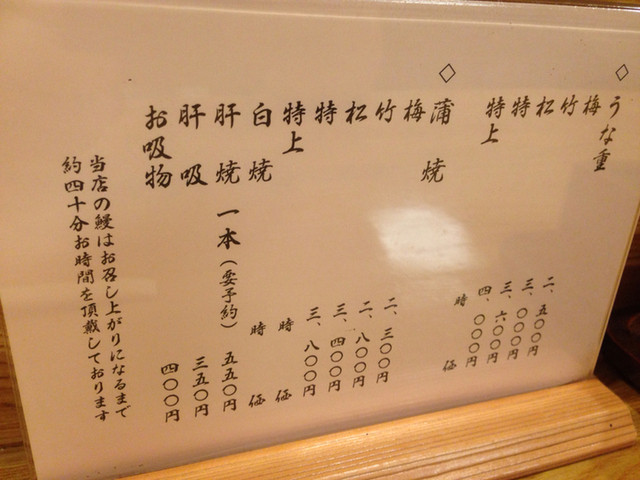 ◇うな重
梅 二、五〇〇円
竹 三、〇〇〇円
松 三、六〇〇円
特 四、〇〇〇円
特上 時価
◇蒲焼
梅 二、三〇〇円
竹 二、八〇〇円
松 三、四〇〇円
特 三、八〇〇円
特上 時価
白焼 時価
肝焼 一本（要予約） 五五〇円
肝吸 三五〇円
お吸物 四〇〇円
当店の鰻はお召し上がりになるまで
約四十分お時間を頂戴しております